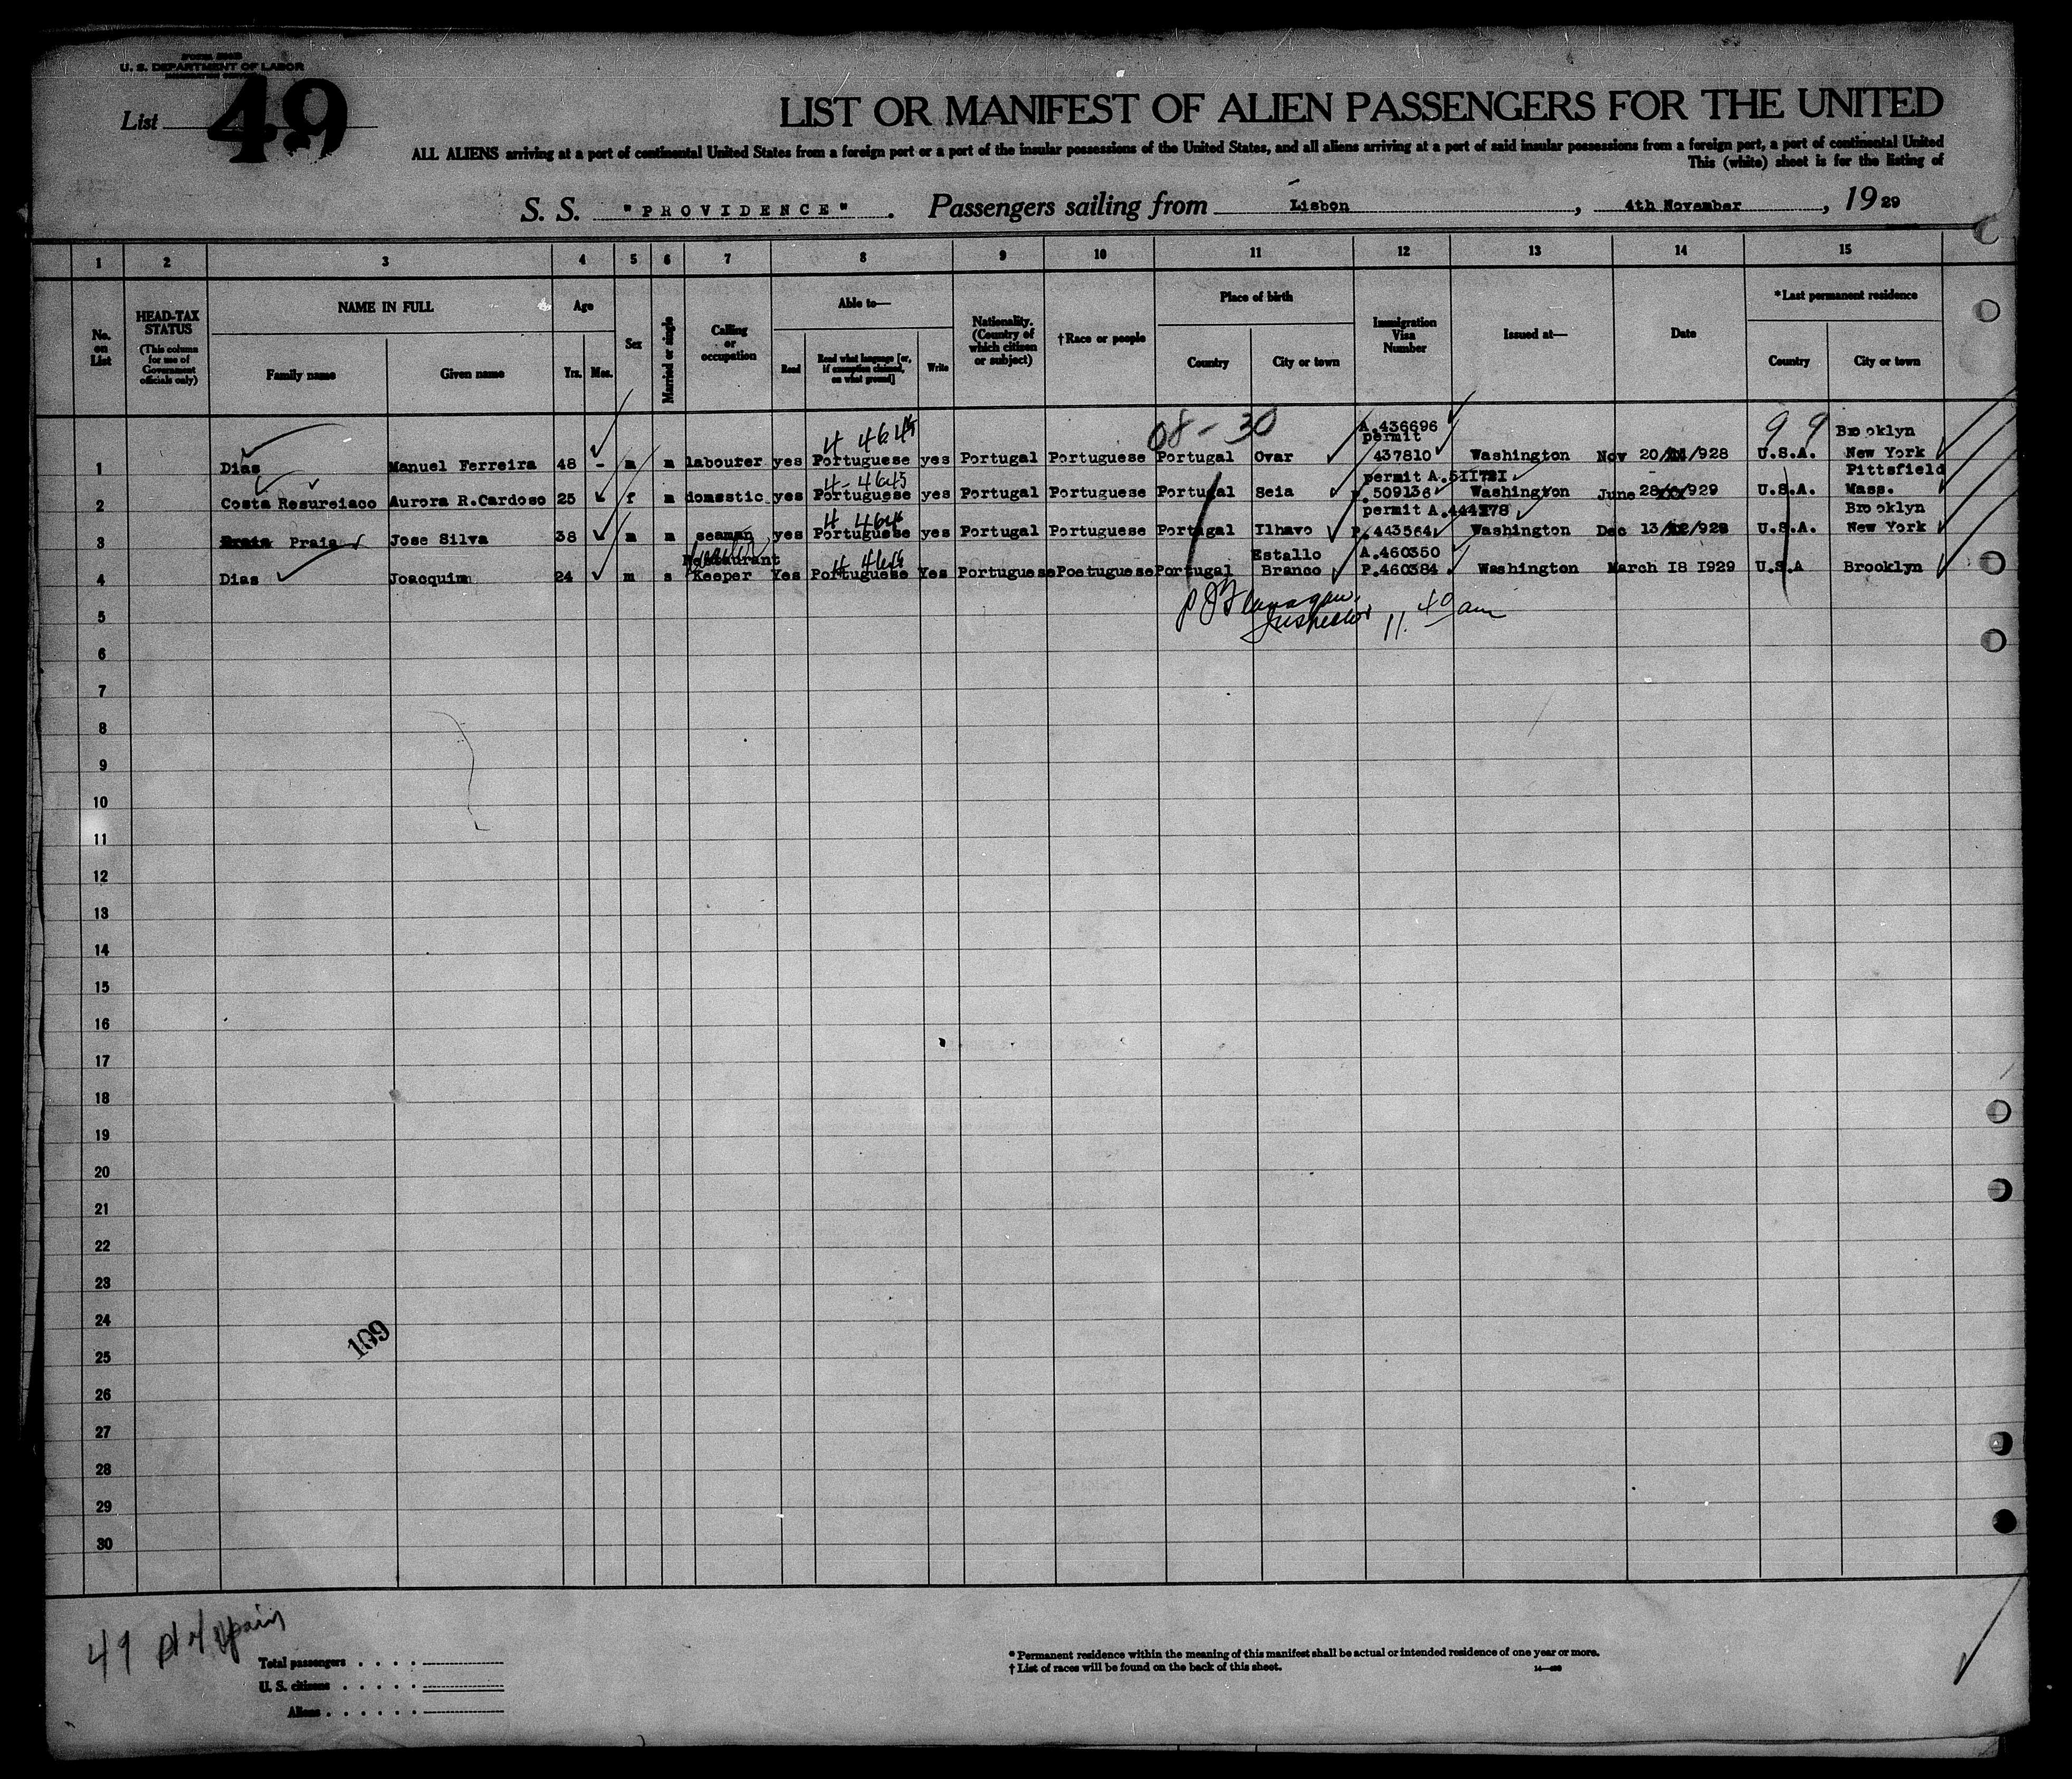 U. S. DEPARTMENT OF LABOR
List 49
LIST OR MANIFEST OF ALIEN PASSENGERS FOR THE UNITED
ALL ALIENS arriving at a port of continental United States from a foreign port or a port of the insular possessions of the United States, and all aliens arriving at a port of said insular possessions from a foreign port, a port of continental United
This (white) sheet is for the listing of
S. S. "PROVIDENCE" . Passengers sailing from Lisbon , 4th November , 19 29
1 2 3 4 5 6 7 8 9 10 11 12 13 14 15
No. on List
HEAD-TAX STATUS (This column for use of Government officials only)
NAME IN FULL
Family name Given name
Age
Yrs. Mos.
Sex
Married or single
Calling or occupation
Able to—
Read Read what language [or, if exemption claimed, on what ground] Write
Nationality. (Country of which citizen or subject)
†Race or people
Place of birth
Country City or town
Immigration Visa Number
Issued at—
Date
*Last permanent residence
Country City or town
08-30
99
4 4645 A.436696 Brooklyn
permit
1 Dias Manuel Ferreira 48 - m m labourer yes Portuguese yes Portugal Portuguese Portugal Ovar 437810 Washington Nov 20/ /928 U.S.A. New York
4-4645 permit A.5II72I Pittsfield
2 Costa Resureicao Aurora R.Cardoso 25 f m domestic yes Portuguese yes Portugal Portuguese Portugal Seia P.509136 Washington June 28/ /929 U.S.A. Mass.
4 464 permit A.444278 Brooklyn
3 Praia Jose Silva 38 m m seaman yes Portuguese yes Portugal Portuguese Portugal Ilhavo P.443564 Washington Dec 13/12/928 U.S.A. New York
Restaurant 4 464 Estallo A.460350
4 Dias Joacquim 24 m s Keeper Yes Portuguese Yes Portuguese Poetuguese Portugal Branco P.460384 Washington March I8 I929 U.S.A Brooklyn
P J Flanagan
Inspector 11.40 am
5
6
7
8
9
10
11
12
13
14
15
16
17
18
19
20
21
22
23
24
109
25
26
27
28
29
30
49
Total passengers . . . .
U. S. citizens . . . . .
Aliens . . . . . .
* Permanent residence within the meaning of this manifest shall be actual or intended residence of one year or more.
† List of races will be found on the back of this sheet.